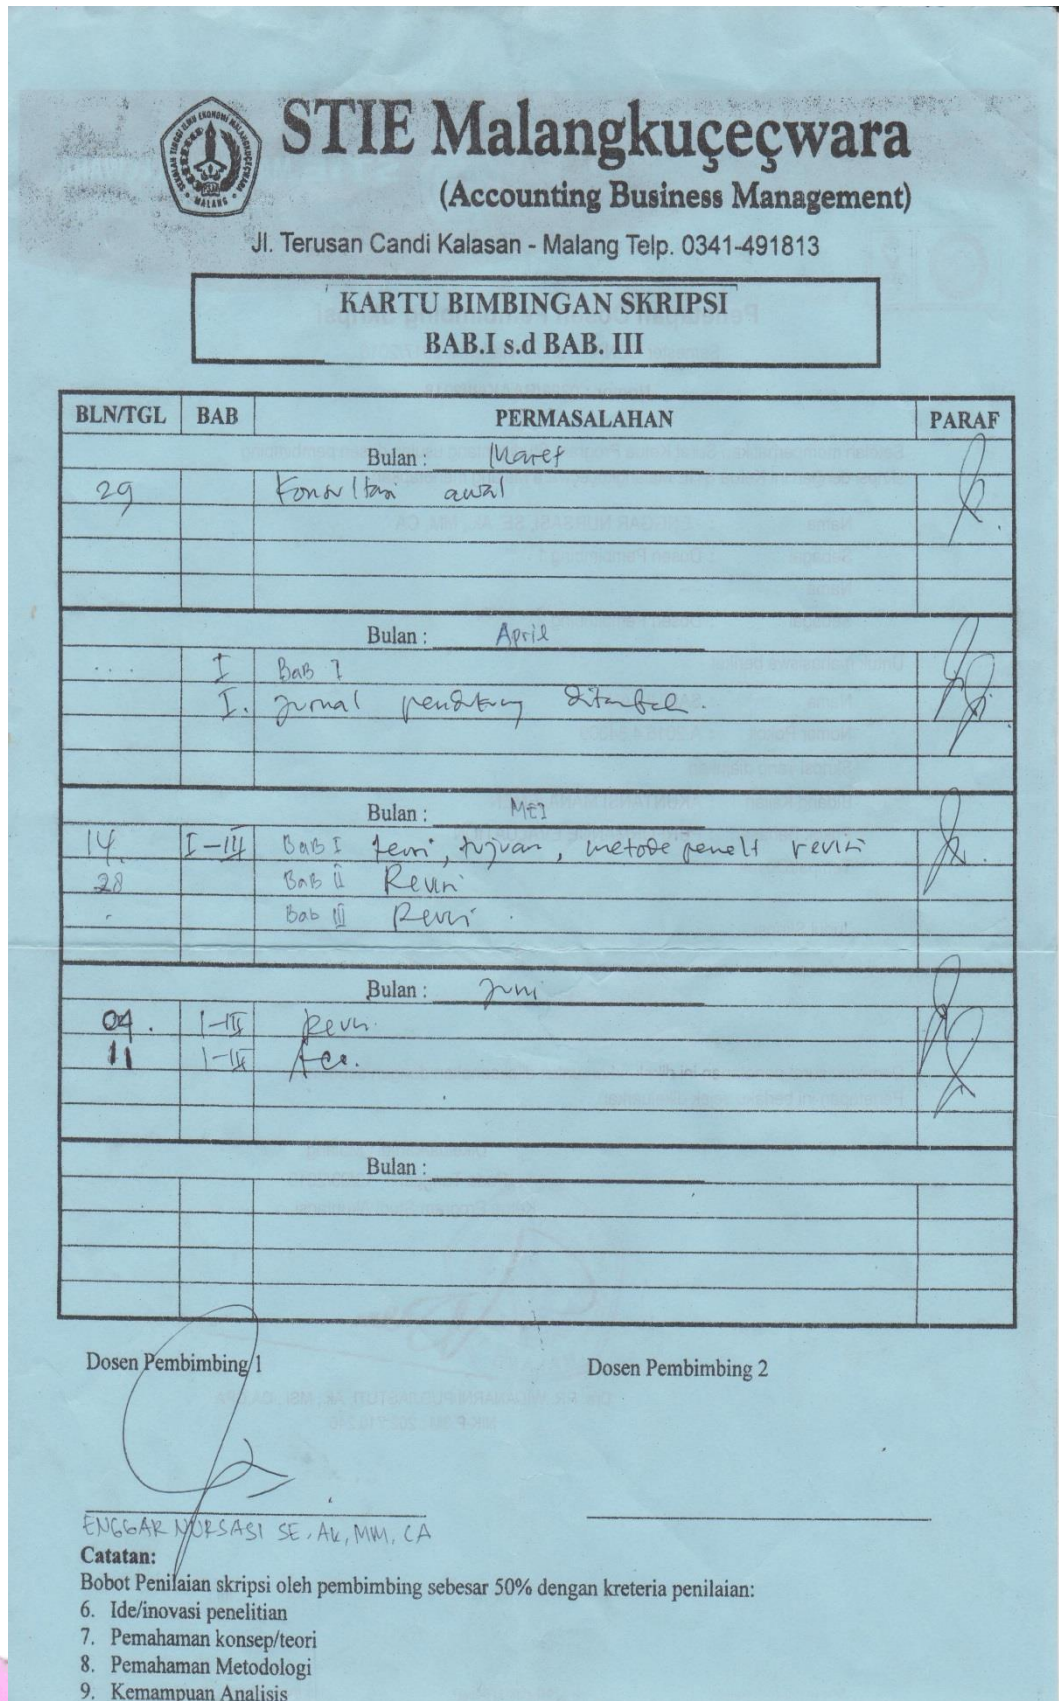 STIE Malangkuçeçwara
(Accounting Business Management)
SEKOLAH TINGGI ILMU EKONOMI MALANGKUÇEÇWARA
MALANG
Jl. Terusan Candi Kalasan - Malang Telp. 0341-491813
KARTU BIMBINGAN SKRIPSI
BAB.I s.d BAB. III
BLN/TGL BAB PERMASALAHAN PARAF
Bulan : Maret
29 Konsultasi awal
Bulan : April
.... I Bab I
I. Jurnal ditambah.
Bulan : MEI
14. I-III Bab I teori, tujuan, metode penelt revisi
28 Bab II Revisi
Bab III Revisi
Bulan : Juni
04. I-III Revisi
11 I-III Acc.
Bulan :
Dosen Pembimbing 1 Dosen Pembimbing 2
ENGGAR NURSASI SE, Ak, MM, CA
Catatan:
Bobot Penilaian skripsi oleh pembimbing sebesar 50% dengan kreteria penilaian:
6. Ide/inovasi penelitian
7. Pemahaman konsep/teori
8. Pemahaman Metodologi
9. Kemampuan Analisis